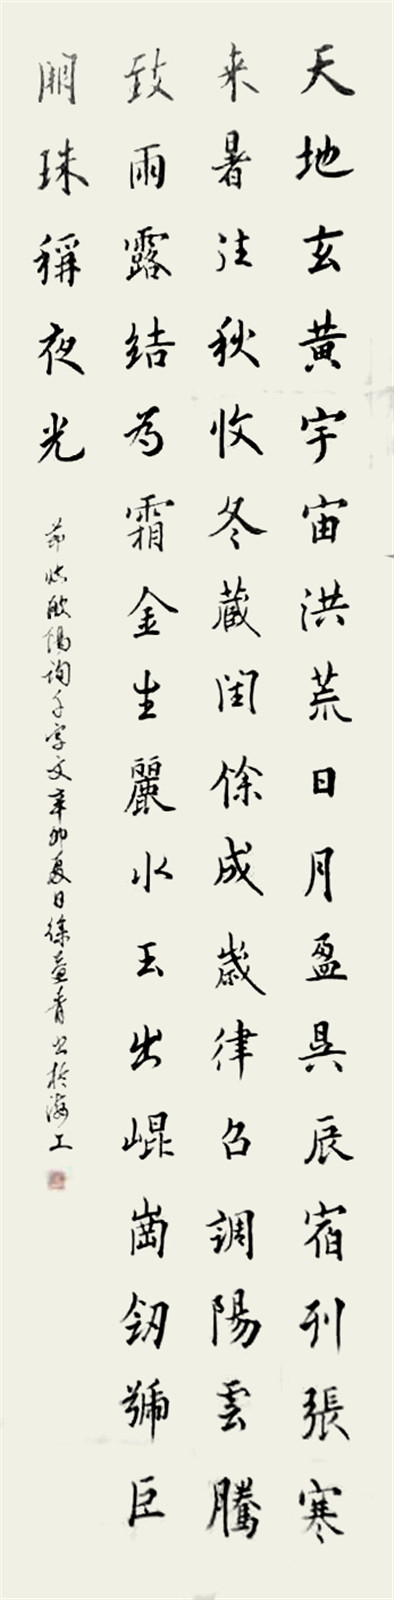 天地玄黃宇宙洪荒日月盈昃辰宿列張寒
来暑往秋收冬藏閏餘成歲律召調陽雲騰
致雨露結為霜金生麗水玉出崐崗劍號巨
闕珠稱夜光
節临歐陽詢千字文辛卯夏日徐青书於海